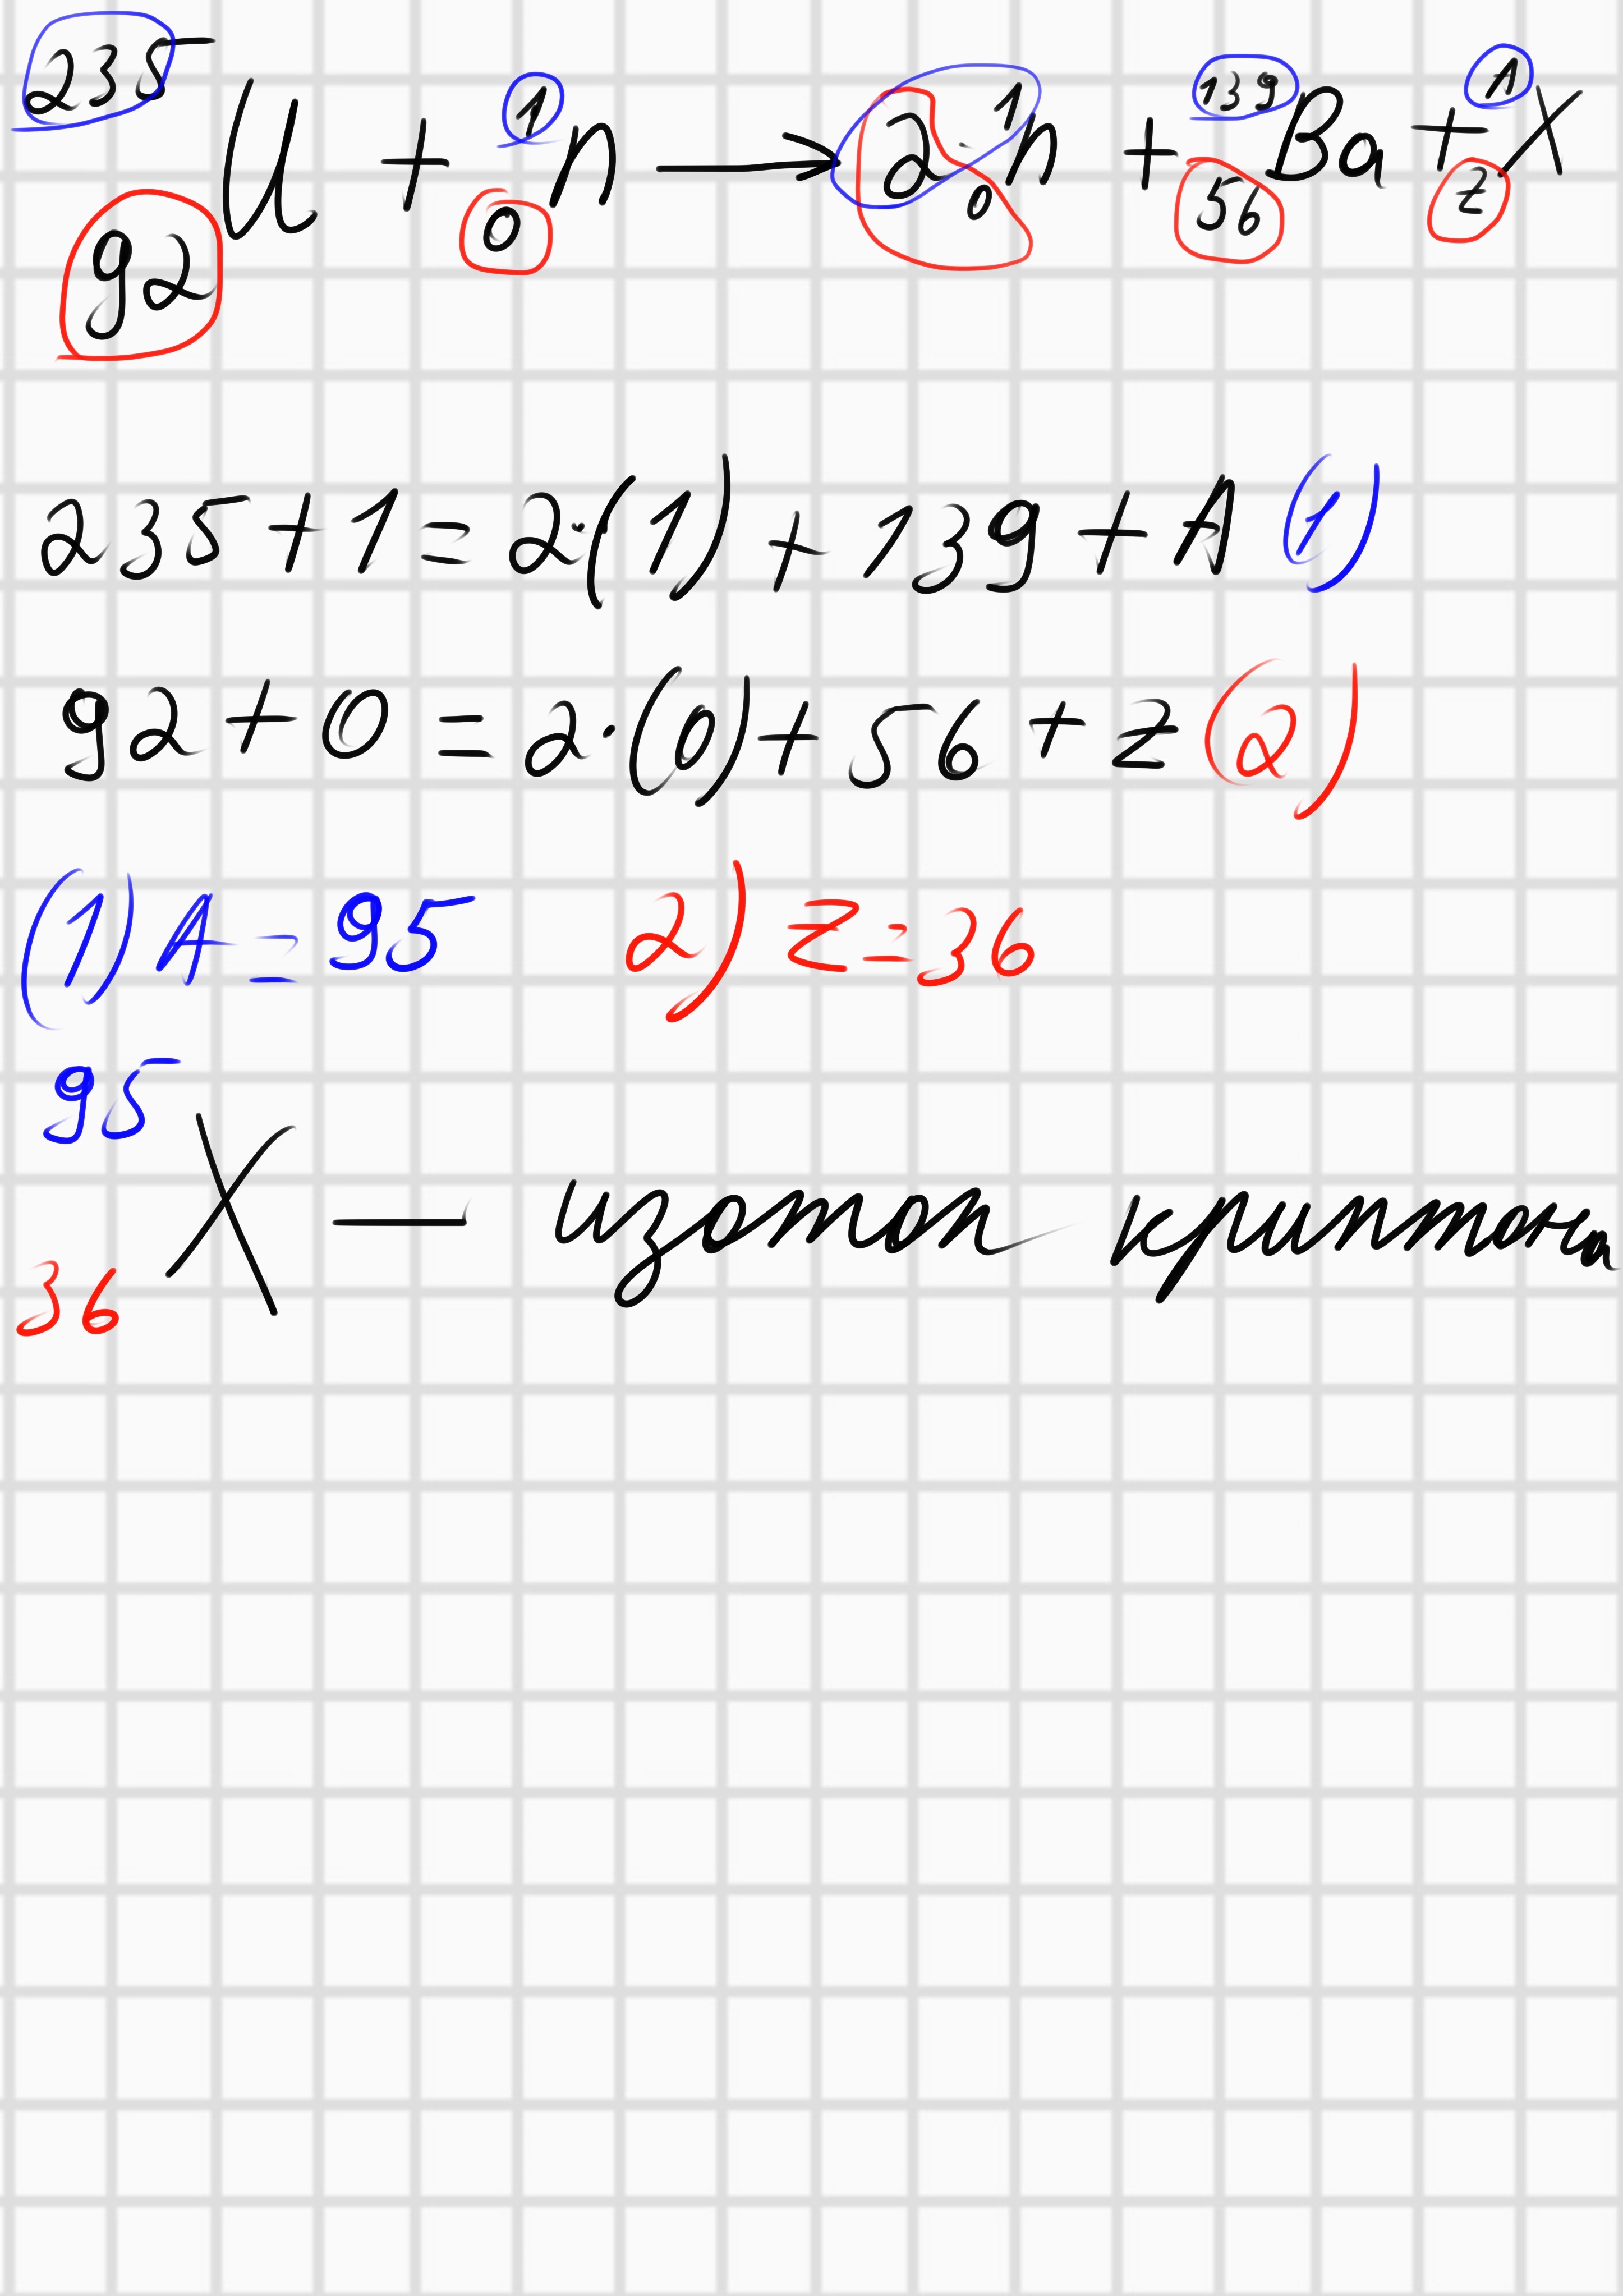 ²³⁵₉₂U + ¹₀n → 2·¹₀n + ¹³⁹₅₆Ba + ᴬ_ZX
235+1=2·(1)+139+A (1)
92+0=2·(0)+56+z (2)
(1) A=95 2) z=36
⁹⁵₃₆X — изотоп криптона